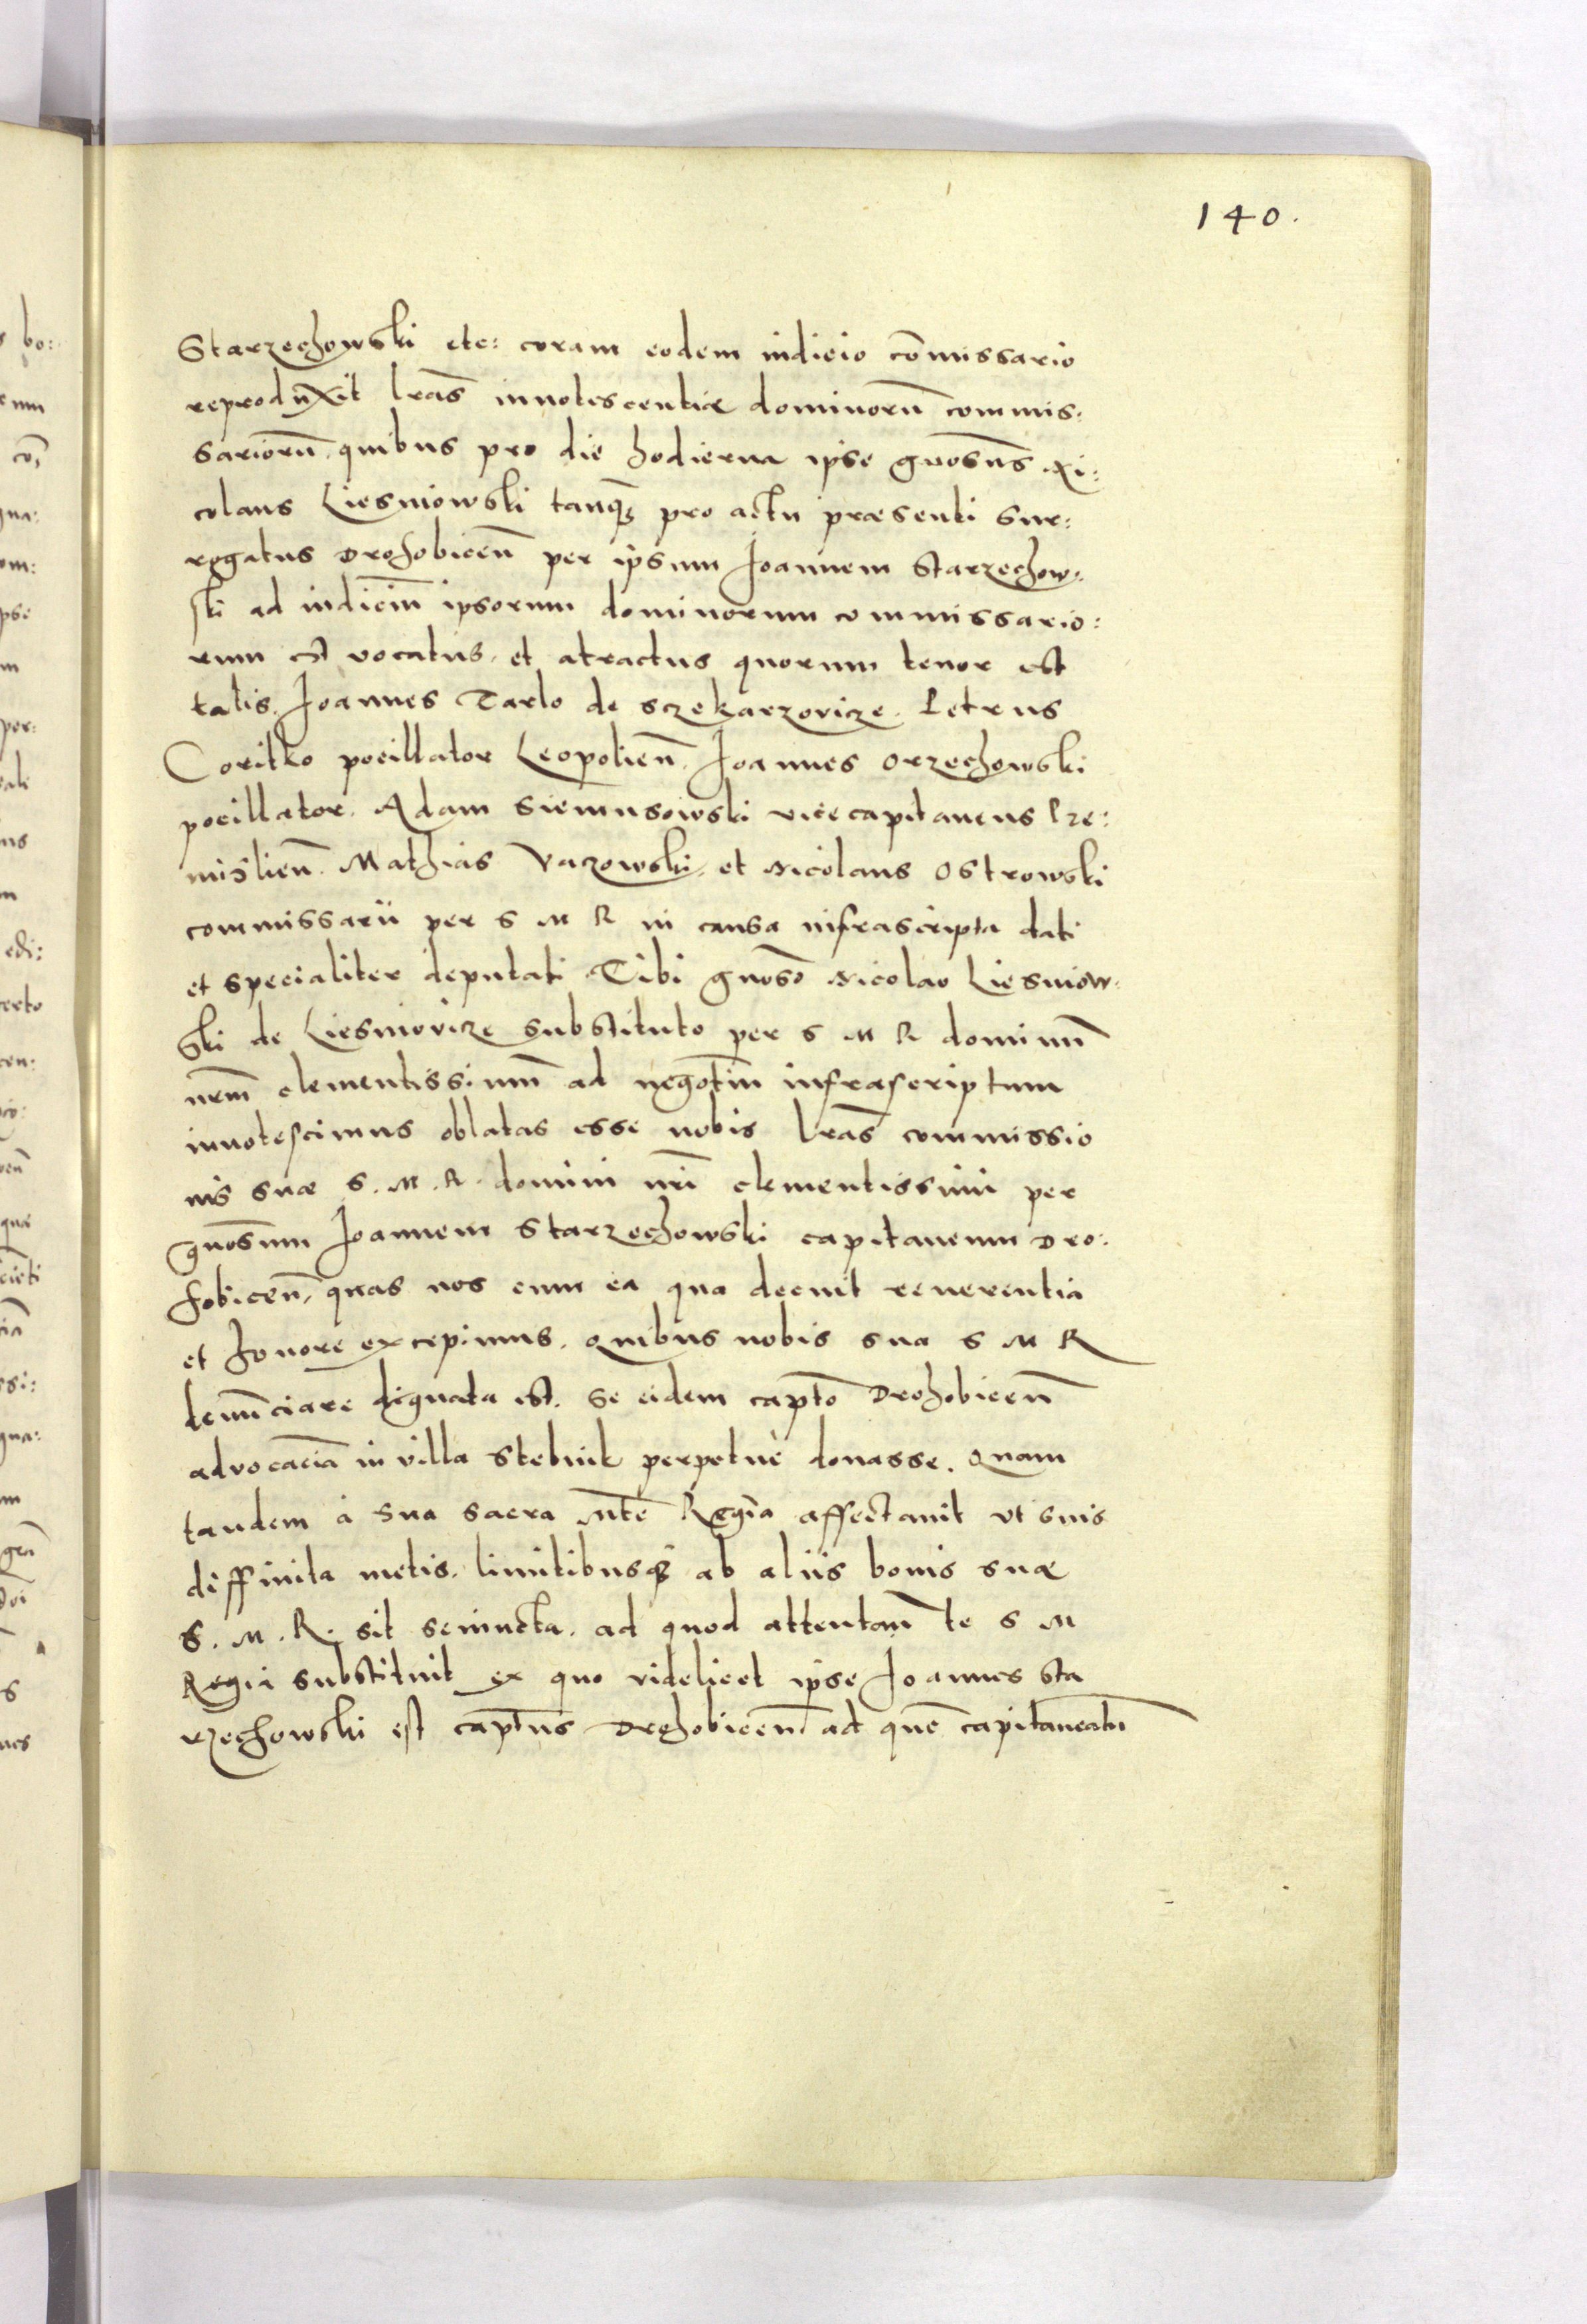 140.
Starzechowski etc: coram eodem iudicio cõmissario
reproduxit lras̃ innotescentiæ dominorũ commis:
sariorũ quibus pro die hodierna ipse gnosus̃ Ni:
colaus Liesniowski tanq̃ pro actu præsenti sur:
rogatus Drohobiceñ per ipsum Joannem Starzechow:
ski ad iudiciũ ipsorum dominorum commissario:
rum est vocatus et atractus quorum tenor est
talis. Joannes Tarlo de Sczekarzovicze. Petrus
Coritko pocillator Leopolieñ. Joannes Orzechowski
pocillator. Adam Siemusowski vicecapitaneus Pre:
mislieñ. Mathias Vazowski et Nicolaus Ostrowski
commissarii per S M R in causa infrascripta dati
et specialiter deputati Tibi gnosõ Nicolao Liesniow:
ski de Liesniovicze substituto per S M R dominũ
nrm̃ clementissimũ ad negotiũ infrascriptum
innotescimus oblatas esse nobis lras̃ commissio
nis suæ S. M. R. domini nrĩ clementissimi per
gnosũm Joannem Starzechowski capitaneum Dro:
hobiceñ, quas nos cum ea qua decuit reverentia
et honore excepimus. Quibus nobis sua S M R
denũciare dignata est. Se eidem captõ Drohobiceñ
advocaciã in villa Stebnik perpetuè donasse. Quam
tandem à sua sacra Mtẽ Regiã affectavit ut suis
diffinita metis. limitibusq̃ ab aliis bonis suæ
S. M. R. sit seiuncta. ad quod attentañ te S M
Regia substituit ex quo videlicet ipse Joannes Sta
rzechowski est captus̃ Drohobiceñ ad quẽ capitaneatũ